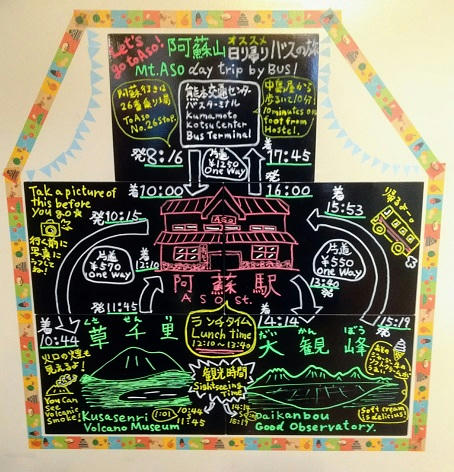 Let's
go to Aso!
阿蘇山
オススメ
日り帰り
バスの旅
Mt.Aso day trip by BUS!
阿蘇行きは
26番乗り場
To Aso
No.26 stop.
熊本交通センター
バスターミナル
Kumamoto
KotsuCenter
Bus Terminal
中島屋から
歩いて10分!
10minutes on
foot from
Hostel.
発8:16
片道
¥1250
One Way
着
17:45
着
10:00
発
16:00
Take a picture of
this before
you go☆
行く前に
写真に
うつして
ね!
発10:15
片道
¥570
One Way
着
12:10
発11:45
着
10:44
Aso
阿蘇駅
ASO st.
着
15:53
帰るよー
片道
¥550
One Way
13:40
発
着
14:14
15:19
発
くさせんり
草千里
火口の煙も
見えるよ!
You can
See
volcanic
smoke!
Kusasenri
Volcano Museum
1:01
10:44
11:45
ランチタイム
Lunch time
12:10~13:40
観光時間
Sightseeing
Time
14:14
15:19
だいかんぼう
大観峰
Daikanbou
Good Observatory.
Soft cream
is delicious!